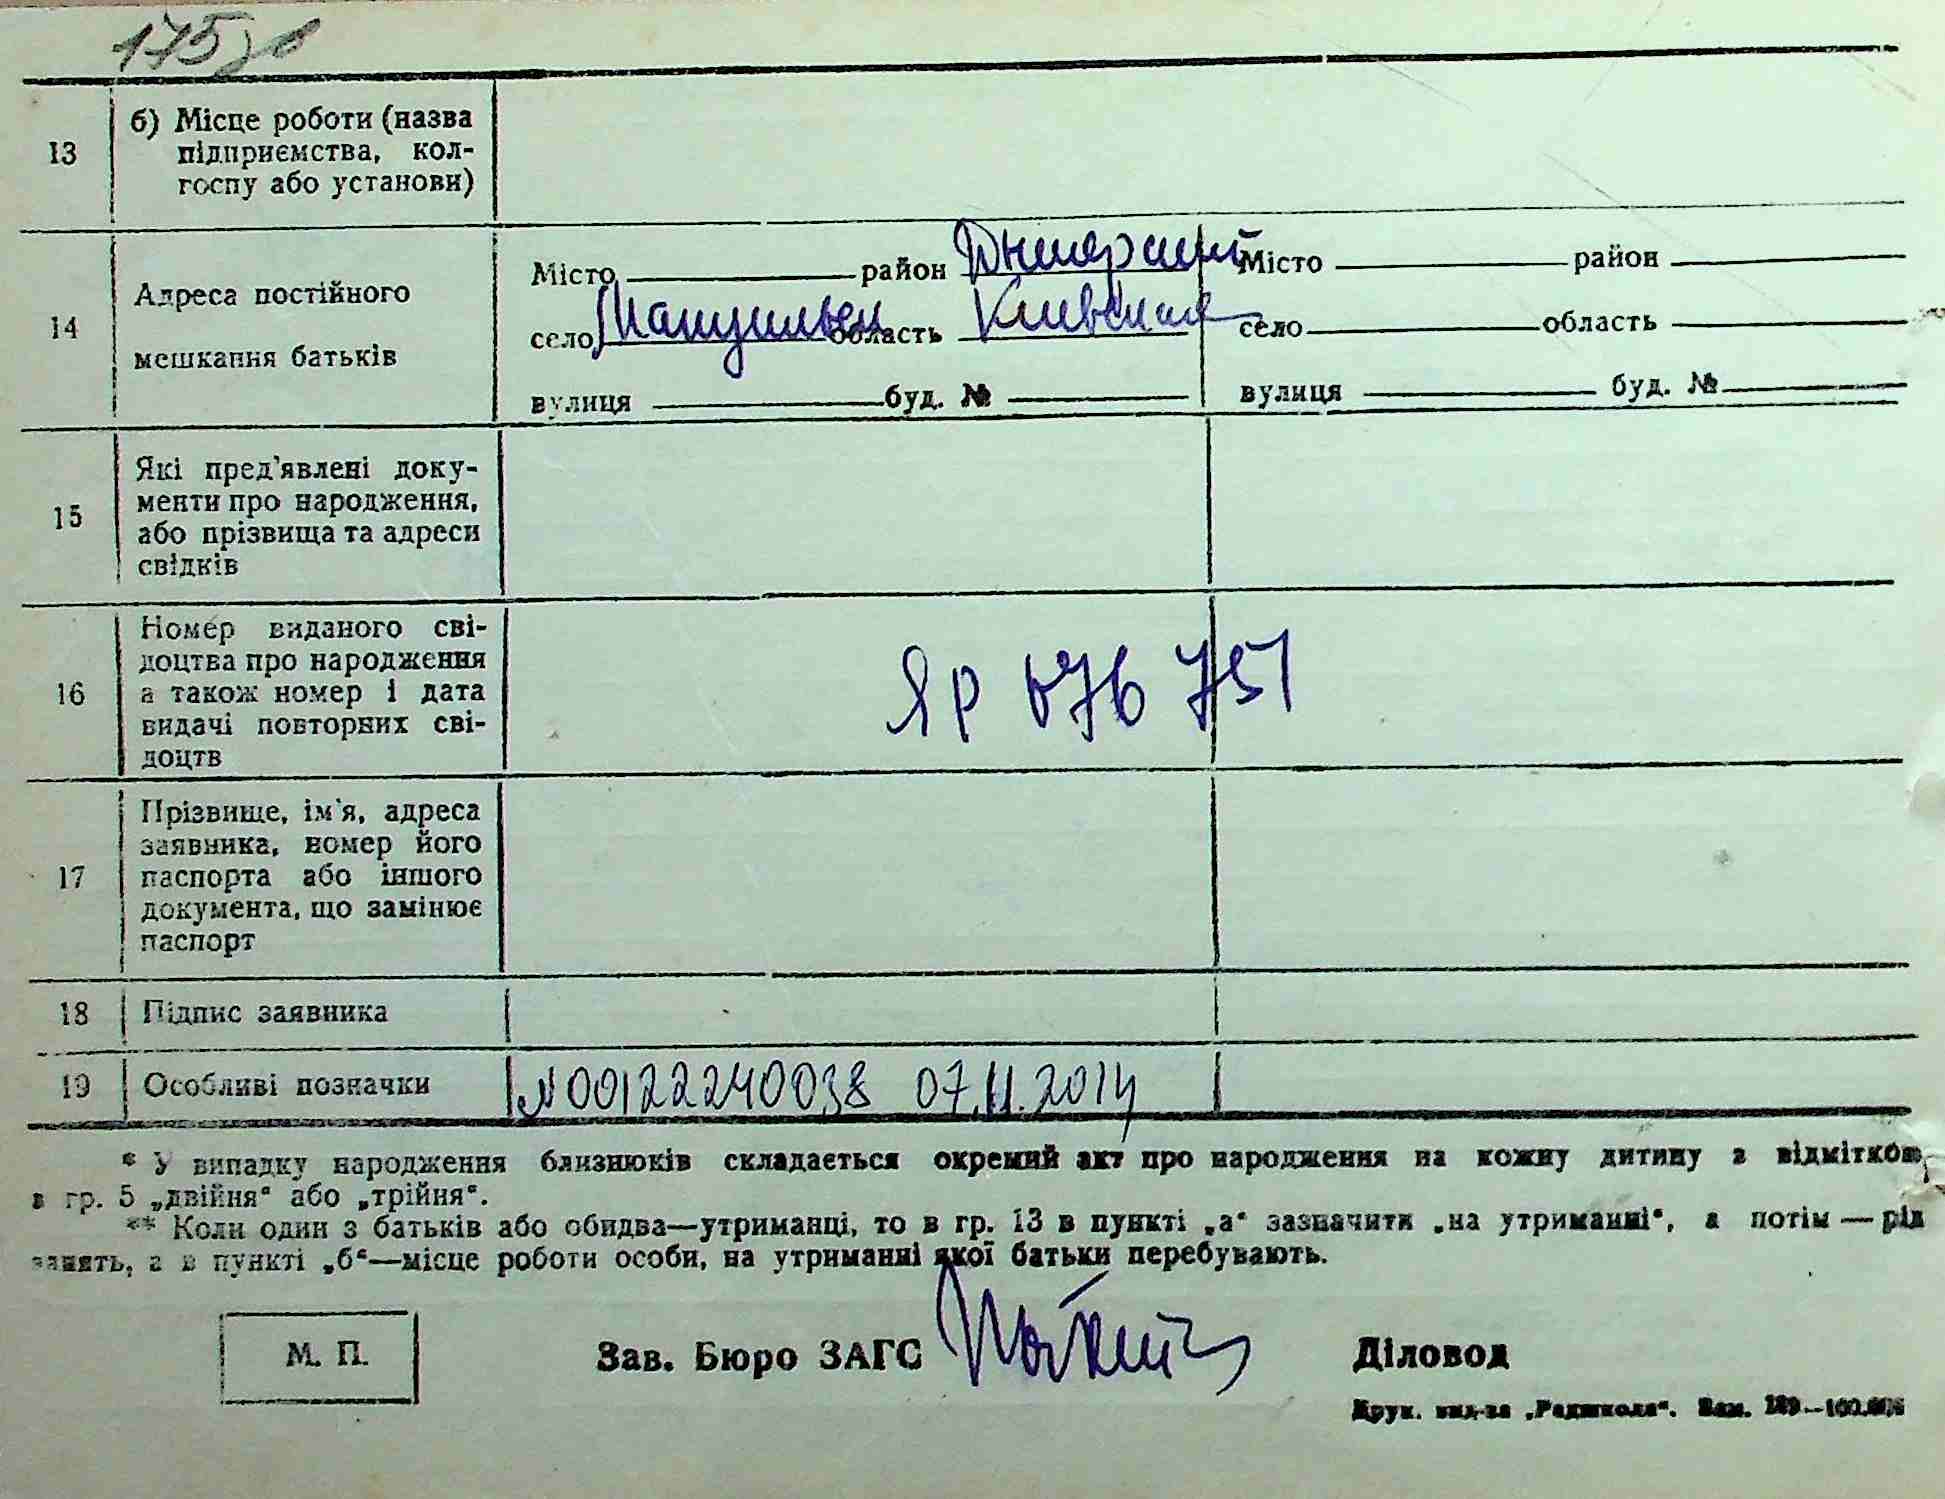 175 зв
13 б) Місце роботи (назва
підприємства, кол-
госпу або установи)
14 Адреса постійного
мешкання батьків
Місто район Димерский Місто район
село область Киевская село область
вулиця буд. № вулиця буд. №
15 Які пред'явлені доку-
менти про народження,
або прізвища та адреси
свідків
16 Номер виданого сві-
доцтва про народження
а також номер і дата
видачі повторних сві-
доцтв
ЯР 076 751
17 Прізвище, ім'я, адреса
заявника, номер його
паспорта або іншого
документа, що замінює
паспорт
18 Підпис заявника
19 Особливі позначки N 00122240038 07.11.2014
* У випадку народження близнюків складається окремий акт про народження на кожну дитину з відміткою
в гр. 5 „двійня“ або „трійня“.
** Коли один з батьків або обидва—утриманці, то в гр. 13 в пункті „а“ зазначити „на утриманні“, а потім — рід
занять, а в пункті „б“—місце роботи особи, на утриманні якої батьки перебувають.
М. П. Зав. Бюро ЗАГС Діловод
Друк. вид-ва „Радшкола“. Зам.